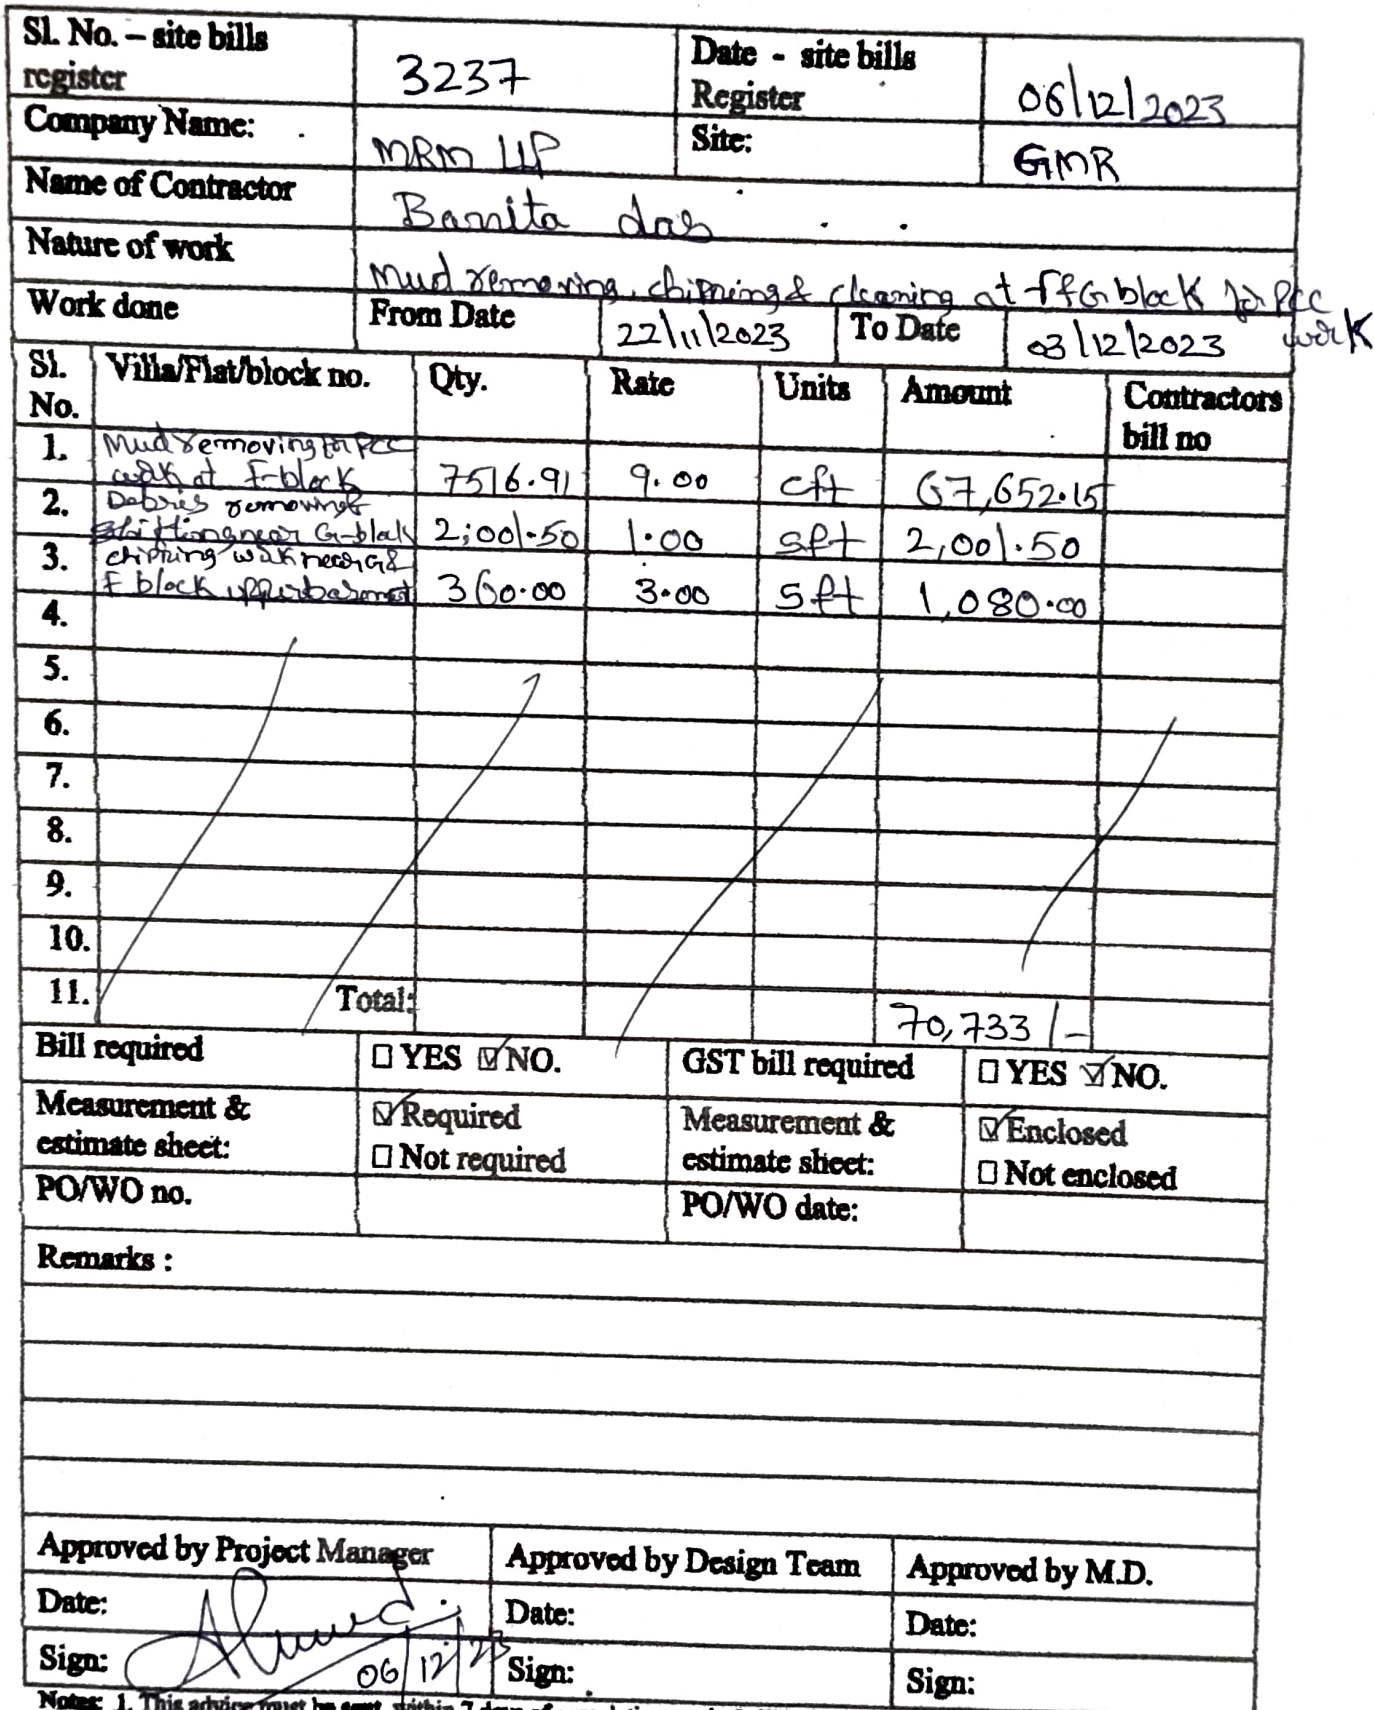 Sl. No. – site bills register 3237 Date - site bills Register 06/12/2023
Company Name: MRM LLP Site: GMR
Name of Contractor Banita das
Nature of work Mud removing, chipping & cleaning at F&G block for PCC work
Work done From Date 22/11/2023 To Date 03/12/2023
Sl. No. Villa/Flat/block no. Qty. Rate Units Amount Contractors bill no
1. Mud removing for PCC work at F-block 7516.91 9.00 cft 67,652.15
2. Debris removing & shifting near G-block 2,001.50 1.00 sft 2,001.50
3. chipping work near G & F block upper basement 360.00 3.00 sft 1,080.00
4.
5.
6.
7.
8.
9.
10.
11. Total: 70,733/-
Bill required ☐ YES ☑ NO. GST bill required ☐ YES ☑ NO.
Measurement & estimate sheet: ☑ Required ☐ Not required Measurement & estimate sheet: ☑ Enclosed ☐ Not enclosed
PO/WO no. PO/WO date:
Remarks :
Approved by Project Manager Approved by Design Team Approved by M.D.
Date: Date: Date:
Sign: 06/12/23 Sign: Sign:
Notes: 1. This advice must be sent within 7 days of